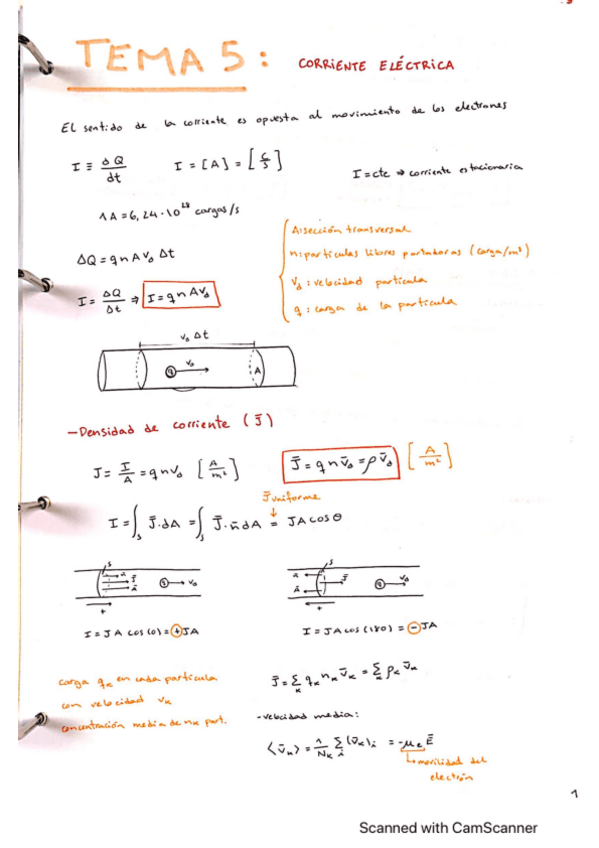 TEMA 5: CORRIENTE ELÉCTRICA
El sentido de la corriente es opuesta al movimiento de los electrones
I ≡ ΔQ/dt    I = [A] = [C/S]    I = cte ⇒ corriente estacionaria
1 A = 6,24·10¹⁸ cargas/s
ΔQ = q n A v₀ Δt
I = ΔQ/Δt ⇒ I = q n A v₀
A: sección transversal
n: partículas libres portadoras (carga/m³)
v₀: velocidad partícula
q: carga de la partícula
v₀ Δt
q v₀ A
- Densidad de corriente (J̄)
J = I/A = q n v₀ [A/m²]    J̄ = q n v̄₀ = ρ v̄₀ [A/m²]
J̄ uniforme
I = ∫ₛ J̄·dA = ∫ₛ J̄·n̄ dA = JA cos θ
I = J A cos(0) = + JA    I = JA cos(180) = - JA
carga qₖ en cada partícula
con velocidad vₖ
concentración media de nₖ part.
J̄ = Σₖ qₖ nₖ v̄ₖ = Σₖ ρₖ v̄ₖ
- velocidad media:
⟨v̄ₖ⟩ = 1/Nₖ Σᵢ (v̄ₖ)ᵢ = -μₑ Ē
movilidad del
electrón
1
Scanned with CamScanner